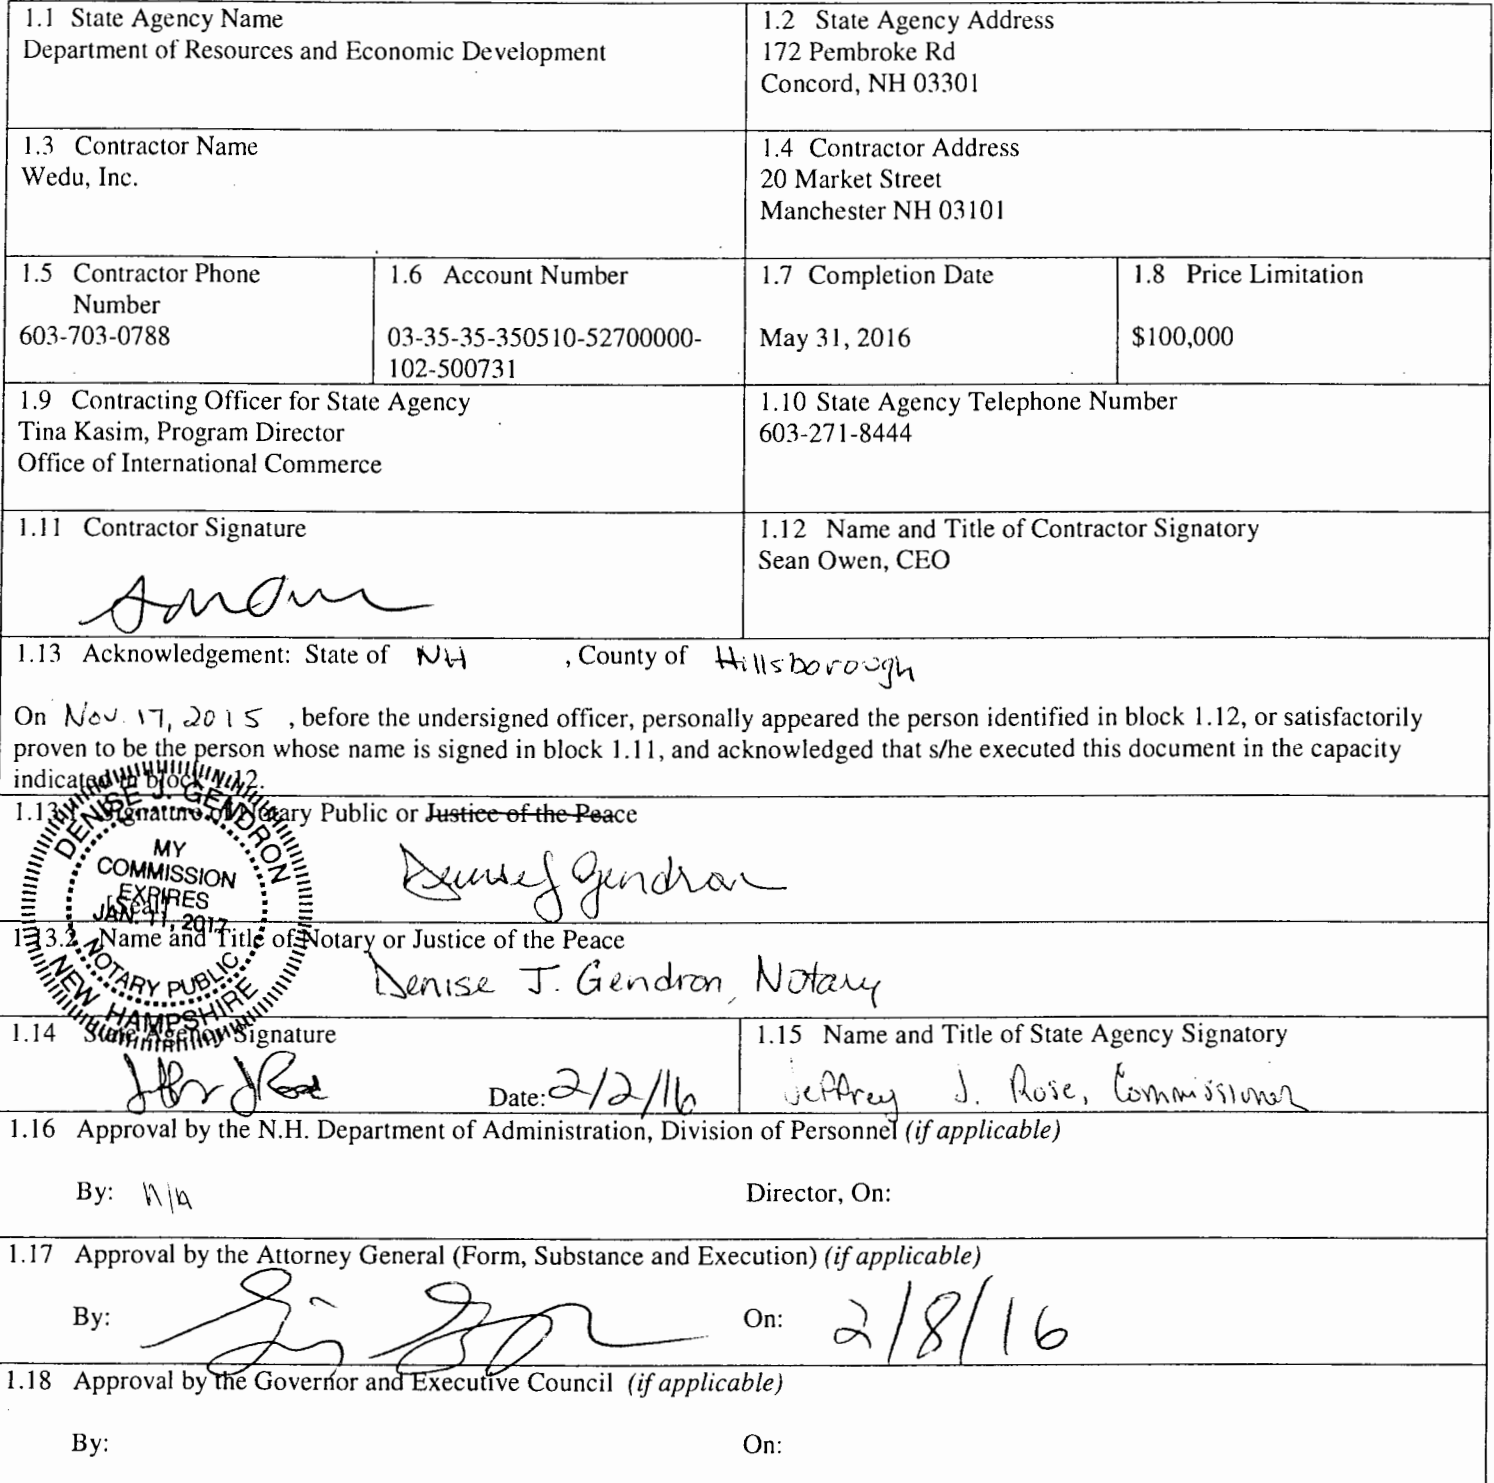 1.1 State Agency Name
Department of Resources and Economic Development
1.2 State Agency Address
172 Pembroke Rd
Concord, NH 03301
1.3 Contractor Name
Wedu, Inc.
1.4 Contractor Address
20 Market Street
Manchester NH 03101
1.5 Contractor Phone
Number
603-703-0788
1.6 Account Number
03-35-35-350510-52700000-
102-500731
1.7 Completion Date
May 31, 2016
1.8 Price Limitation
$100,000
1.9 Contracting Officer for State Agency
Tina Kasim, Program Director
Office of International Commerce
1.10 State Agency Telephone Number
603-271-8444
1.11 Contractor Signature
1.12 Name and Title of Contractor Signatory
Sean Owen, CEO
1.13 Acknowledgement: State of NH , County of Hillsborough
On Nov. 17, 2015 , before the undersigned officer, personally appeared the person identified in block 1.12, or satisfactorily
proven to be the person whose name is signed in block 1.11, and acknowledged that s/he executed this document in the capacity
indicated in block 1.12.
1.13.1 Signature of Notary Public or Justice of the Peace
Denise J Gendron
[Seal]
DENISE J. GENDRON
MY
COMMISSION
EXPIRES
JAN. 11, 2017
NOTARY PUBLIC
NEW HAMPSHIRE
1.13.2 Name and Title of Notary or Justice of the Peace
Denise J. Gendron, Notary
1.14 State Agency Signature
Date: 2/2/16
1.15 Name and Title of State Agency Signatory
Jeffrey J. Rose, Commissioner
1.16 Approval by the N.H. Department of Administration, Division of Personnel (if applicable)
By: N/A Director, On:
1.17 Approval by the Attorney General (Form, Substance and Execution) (if applicable)
By: On: 2/8/16
1.18 Approval by the Governor and Executive Council (if applicable)
By: On: